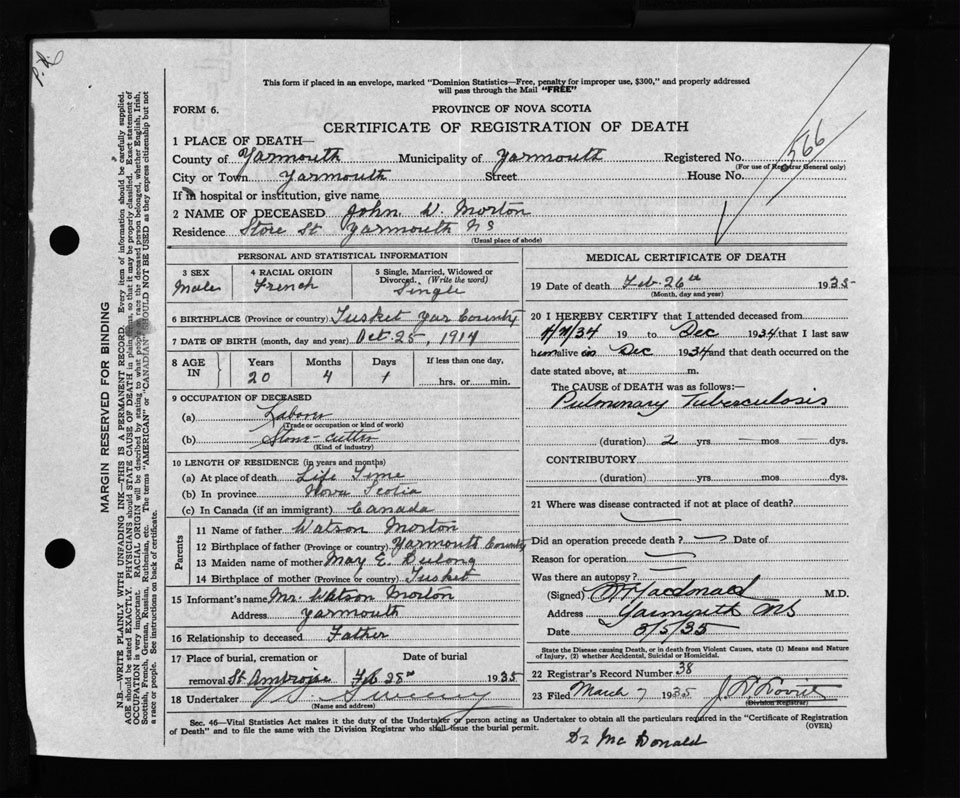 P.R.
This form if placed in an envelope, marked "Dominion Statistics—Free, penalty for improper use, $300," and properly addressed
will pass through the Mail "FREE"
FORM 6.
PROVINCE OF NOVA SCOTIA
CERTIFICATE OF REGISTRATION OF DEATH
1 PLACE OF DEATH—
County of Yarmouth Municipality of Yarmouth Registered No. 566
(For use of Registrar General only)
City or Town Yarmouth Street House No.
If in hospital or institution, give name
2 NAME OF DECEASED John W. Morton
Residence Store St Yarmouth NS
(Usual place of abode)
PERSONAL AND STATISTICAL INFORMATION
3 SEX
Male
4 RACIAL ORIGIN
French
5 Single, Married, Widowed or
Divorced. (Write the word)
Single
6 BIRTHPLACE (Province or country) Tusket Yar County
7 DATE OF BIRTH (month, day and year) Oct. 25, 1914
8 AGE IN
Years 20
Months 4
Days 1
If less than one day,
hrs. or min.
9 OCCUPATION OF DECEASED
(a) Labour
(Trade or occupation or kind of work)
(b) Stone-cutter
(Kind of industry)
10 LENGTH OF RESIDENCE (in years and months)
(a) At place of death Life Time
(b) In province Nova Scotia
(c) In Canada (if an immigrant) Canada
Parents
11 Name of father Watson Morton
12 Birthplace of father (Province or country) Yarmouth County
13 Maiden name of mother May E. Dulong
14 Birthplace of mother (Province or country) Tusket
15 Informant's name Mr. Watson Morton
Address Yarmouth
16 Relationship to deceased Father
17 Place of burial, cremation or
removal St. Ambroise
Date of burial
Feb 28th 1935
18 Undertaker Sweeny
(Name and address)
MEDICAL CERTIFICATE OF DEATH
19 Date of death Feb. 26th 1935
(Month, day and year)
20 I HEREBY CERTIFY that I attended deceased from
19 to Dec 1934 that I last saw
him alive in Dec 1934 and that death occurred on the
date stated above, at m.
The CAUSE of DEATH was as follows:—
Pulmonary Tuberculosis
(duration) 2 yrs. — mos. — dys.
CONTRIBUTORY
(duration) yrs. mos. dys.
21 Where was disease contracted if not at place of death?
Did an operation precede death? Date of
Reason for operation
Was there an autopsy?
(Signed) Macdonald M.D.
Address Yarmouth NS
Date 3/5/35
State the Disease causing Death, or in death from Violent Causes, state (1) Means and Nature
of Injury, (2) whether Accidental, Suicidal or Homicidal.
22 Registrar's Record Number 38
23 Filed March 7 1935
(Division Registrar)
Sec. 46—Vital Statistics Act makes it the duty of the Undertaker or person acting as Undertaker to obtain all the particulars required in the "Certificate of Registration
of Death" and to file the same with the Division Registrar who shall issue the burial permit.
(OVER)
Dr McDonald
MARGIN RESERVED FOR BINDING
N.B.—WRITE PLAINLY WITH UNFADING INK—THIS IS A PERMANENT RECORD. Every item of information should be carefully supplied.
AGE should be stated EXACTLY. PHYSICIANS should STATE CAUSE OF DEATH in plain terms, so that it may be properly classified. Exact statement of
OCCUPATION is very important. RACIAL ORIGIN will be described by stating to what people or race the deceased person belonged, whether English, Irish,
Scottish, French, German, Russian, Ruthenian, etc. The terms "AMERICAN" or "CANADIAN" SHOULD NOT BE USED as they express citizenship but not
a race or people. See instructions on back of certificate.